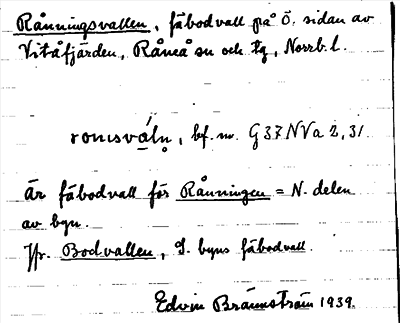 Rånningsvallen, fäbodvall på Ö. sidan av
Vitåfjärden, Råneå sn och tg, Norrb. l.
ronısvá̱lṇ, bf. nr. G 37 NVa 2, 31.
är fäbodvall för Rånningen = N. delen
av byn.
Jfr. Bodvallen, S. byns fäbodvall.
Edvin Brännström 1939.